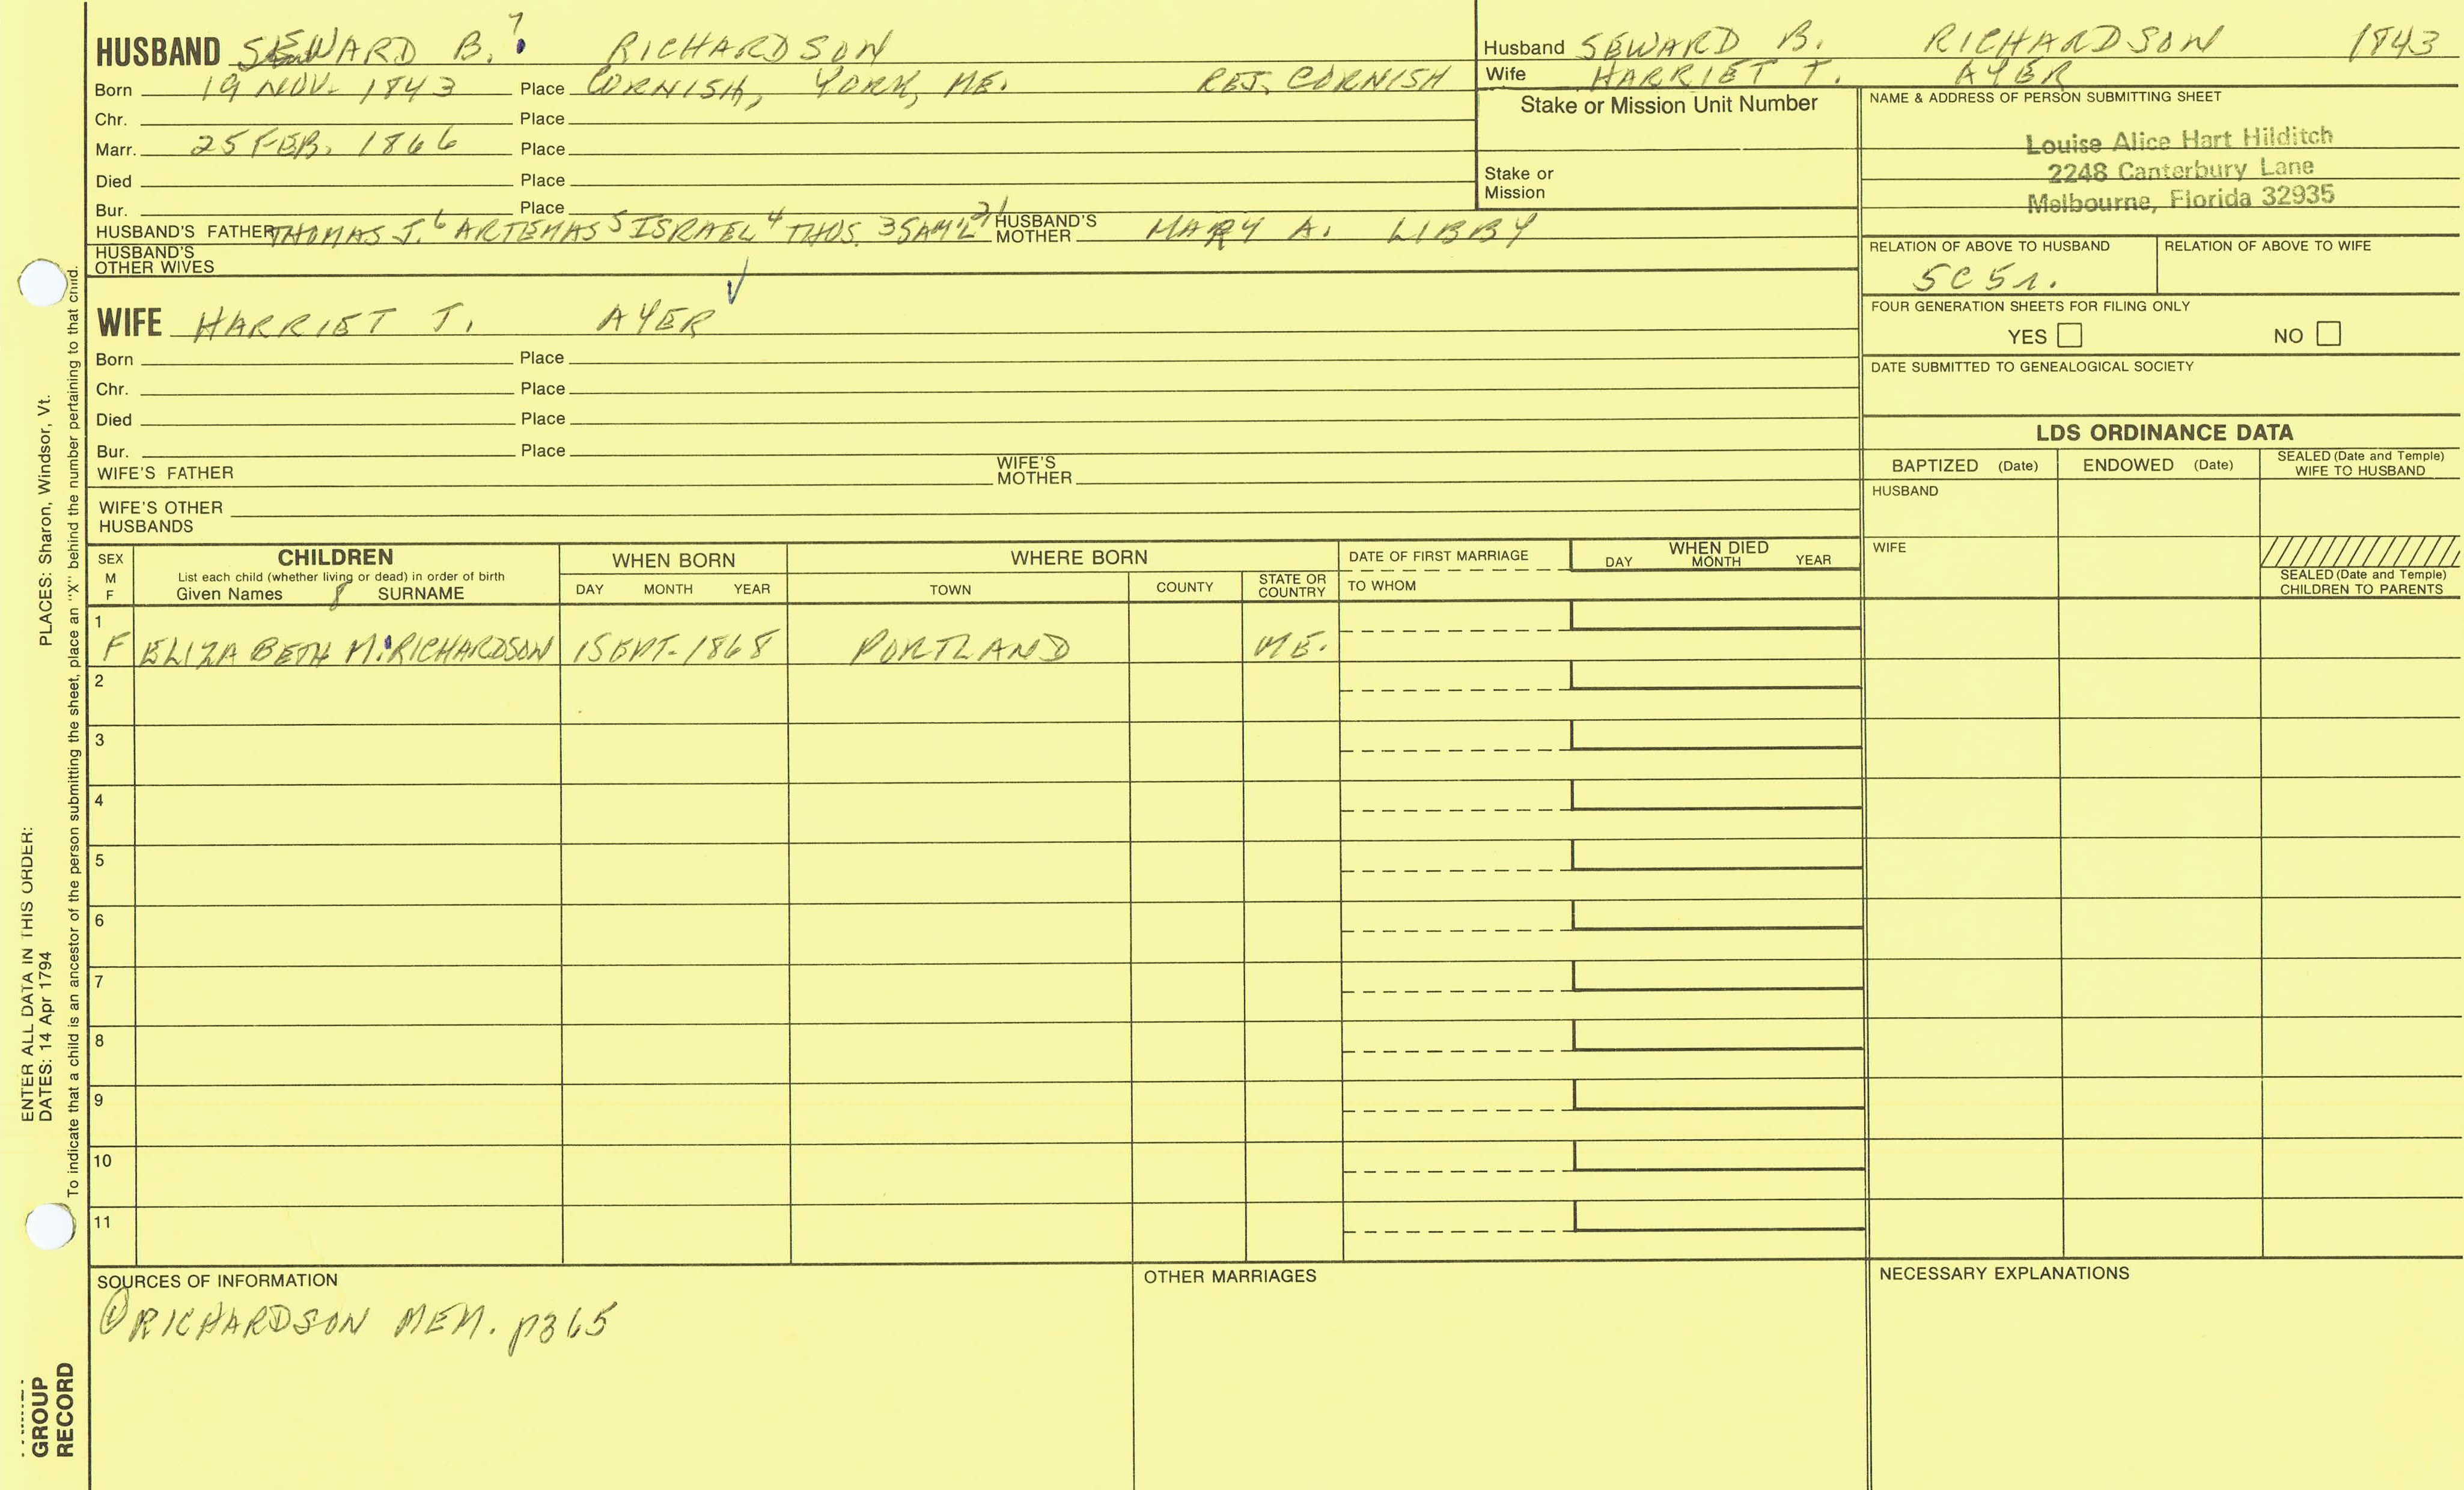 HUSBAND SEWARD B.7 RICHARDSON
Born 19 NOV. 1843 Place CORNISH, YORK, ME. RES. CORNISH
Chr. Place
Marr. 25 FEB. 1866 Place
Died Place
Bur. Place
HUSBAND'S FATHER THOMAS J.6 ARTEMAS 5 ISRAEL 4 THOS. 3 SAM'L 2,1 HUSBAND'S MOTHER MARY A. LIBBY
HUSBAND'S OTHER WIVES
WIFE HARRIET T. AYER
Born Place
Chr. Place
Died Place
Bur. Place
WIFE'S FATHER WIFE'S MOTHER
WIFE'S OTHER HUSBANDS
Husband SEWARD B. RICHARDSON 1843
Wife HARRIET T. AYER
Stake or Mission Unit Number
Stake or
Mission
NAME & ADDRESS OF PERSON SUBMITTING SHEET
Louise Alice Hart Hilditch
2248 Canterbury Lane
Melbourne, Florida 32935
RELATION OF ABOVE TO HUSBAND RELATION OF ABOVE TO WIFE
5C 5r.
FOUR GENERATION SHEETS FOR FILING ONLY
YES NO
DATE SUBMITTED TO GENEALOGICAL SOCIETY
LDS ORDINANCE DATA
BAPTIZED (Date) ENDOWED (Date) SEALED (Date and Temple) WIFE TO HUSBAND
HUSBAND
WIFE
SEALED (Date and Temple)
CHILDREN TO PARENTS
SEX M F
CHILDREN
List each child (whether living or dead) in order of birth
Given Names 8 SURNAME
WHEN BORN
DAY MONTH YEAR
WHERE BORN
TOWN COUNTY STATE OR COUNTRY
DATE OF FIRST MARRIAGE
TO WHOM
WHEN DIED
DAY MONTH YEAR
1
F ELIZABETH M. RICHARDSON 1 SEPT. 1868 PORTLAND ME.
2
3
4
5
6
7
8
9
10
11
SOURCES OF INFORMATION
① RICHARDSON MEM. p365
OTHER MARRIAGES
NECESSARY EXPLANATIONS
ENTER ALL DATA IN THIS ORDER:
DATES: 14 Apr 1794 PLACES: Sharon, Windsor, Vt.
To indicate that a child is an ancestor of the person submitting the sheet, place an "X" behind the number pertaining to that child.
GROUP
RECORD